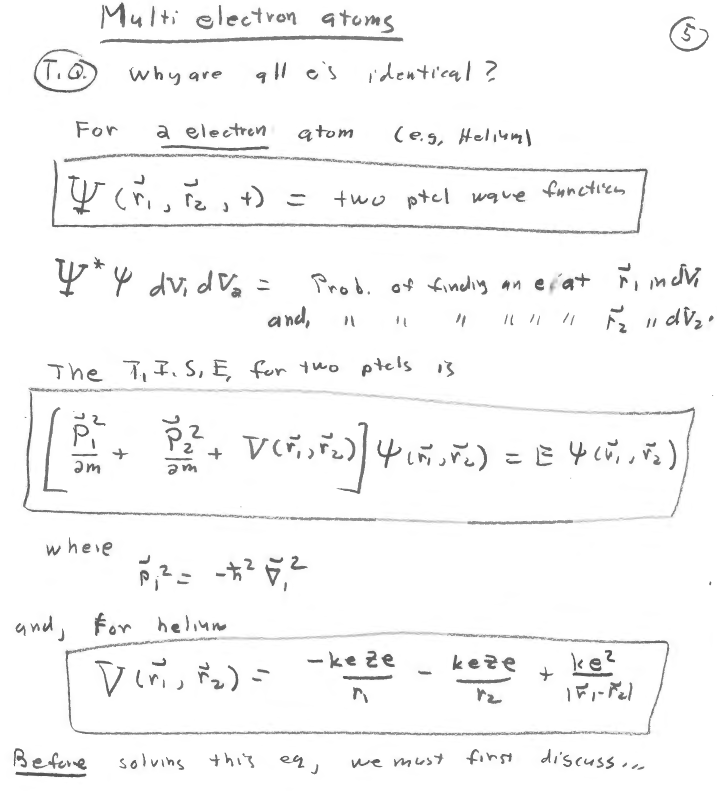 Multi electron atoms
5
T.Q. Why are all e's identical?
For 2 electron atom (e.g, Helium)
Ψ(r⃗₁, r⃗₂, t) = two ptcl wave function
Ψ*Ψ dV₁ dV₂ = Prob. of finding an e⁻ at r⃗₁ in dV₁
and, " " " " " " r⃗₂ " dV₂.
The T.I.S.E. for two ptcls is
[p⃗₁²/2m + p⃗₂²/2m + V(r⃗₁, r⃗₂)] ψ(r⃗₁, r⃗₂) = E ψ(r⃗₁, r⃗₂)
where
p⃗₁² = -ħ² ∇⃗₁²
and, for helium
V(r⃗₁, r⃗₂) = -keze/r₁ - keze/r₂ + ke²/|r⃗₁-r⃗₂|
Before solving this eq, we must first discuss...